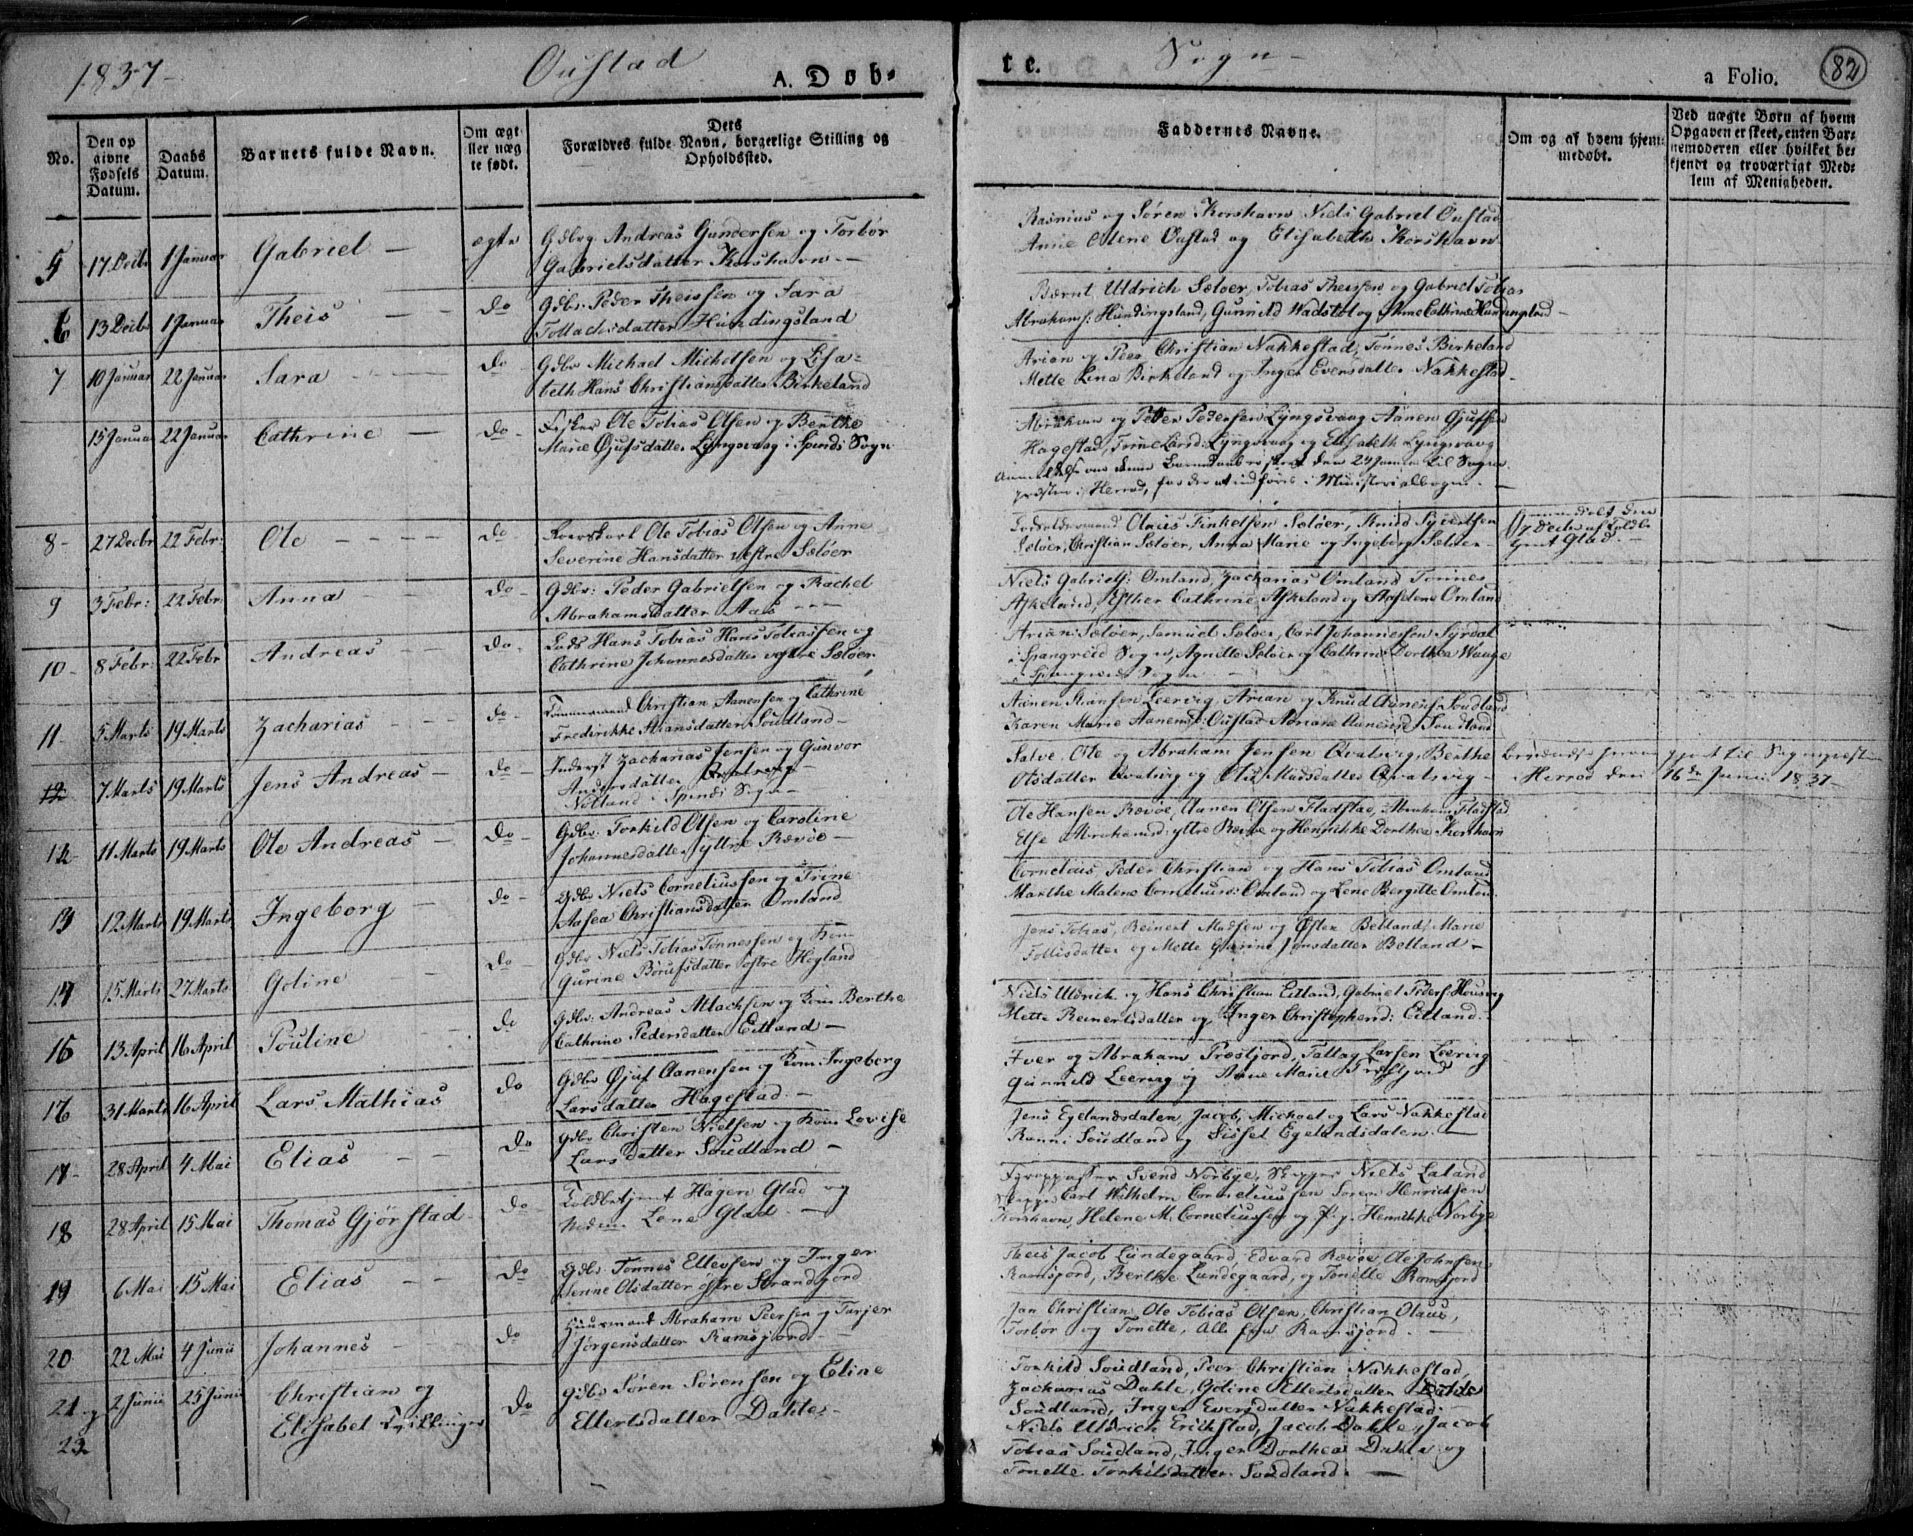 1837-
Oustad
A. Døb-
te.
Sogn-
a Folio.
82
No.
Den op
givne
Fødsels
Datum.
Daabs
Datum.
Barnets fulde Navn.
Om ægt
ller næg
te født.
Dets
Forældres fulde Navn, borgerlige Stilling og
Opholdssted.
Faddernes Navne.
Om og af hvem hjem-
medøbt.
Ved uægte Børn af hvem
Opgaven er skeet, enten Bar-
nemoderen eller hvilket be-
kjendt og troværdigt Med-
lem af Menigheden.
5 17 Decbr 1 Januar Gabriel ægte
Gdbrg. Andreas Gundersen og Torbor
Gabrielsdatter Korshavn
Rasmus og Søren Korshavn Niels Gabriel Oustad
Anne Olene Oustad og Elisabeth Korshavn
6 13 Decbr 1 Januar Theis do
Gdbr: Peder Theissen og Sara
Tollachsdatter Hundingsland
Bærnt Uldrich Sæløer, Tobias Theissen og Gabriel Tobias
Abrahams: Hundingsland, Gunnild Wadstøl og Anne Cathrine Hundingsland
7 10 Januar 22 Januar Sara do
Gdbr Michael Michelsen og Lisa-
beth Hans Christiansdatter Birkeland
Arian og Peer Christian Nakkestad, Tønnes Birkeland
Mette Lena Birkeland og Inger Eversdatter Nakkestad
15 Januar 22 Januar Cathrine do
Fisker Ole Tobias Olsen og Berthe
Marie Øjufsdatter Lyngsvaag i Spinds Sogn
Abraham og Petter Pedersen Lyngsvaag Aanen Øjufsen
Hagestad, Trine Larsd: Lyngsvaag og Elisabeth Lyngsvaag
Anmeldelse om denne Barnedaab er skeet den 24 Januar til Sogne
præsten i Herred, for der at indføres i Ministerialbogen
8 27 Decbr 22 Febr: Ole do
Ole Tobias Olsen og Anne
Severine Hansdatter vestre Sæløer
Lodsoldermand Olaus Finkelsen Sæløer, Knud Syvertsen
Sæløer, Christian Sæløer, Anna Marie og Ingeborg Sæløer
den
7 Decbr af Toldbe
tjent Glad.
9 3 Febr: 22 Febr: Anna do
Gdbr: Peder Gabrielsen og Rachel
Abrahamsdatter Aas
Niels Gabriels: Omland, Zacharias Omland Tønnes
Askeland, Esther Cathrine Askeland og Omland
10 8 Febr: 22 Febr Andreas do
Lods Hans Tobias Hans Tobiassen og
Cathrine Johannesdatter vestre Sæløer
Arian Sæløer, Samuel Sæløer, Carl Johannessen Syrdal
i Spangreid Sogn, Agnette Sæløer og Cathrine Dorthea Waage
i Spangreid Sogn
11 5 Marts 19 Marts Zacharias do
Tømmermand Christian Aanensen og Cathrine
Fredrikke Stiansdatter Soudland
Aanen Stiansen Leervig, Arian og Knud Aanens: Soudland
Karen Marie Aanensd: Oustad Adriane Aanensd: Soudland
12 7 Marts 19 Marts Jens Andreas do
Inderst Zacharias Jensen og Gunvor
Andersdatter Qvalsvig
i Spinds Sogn
Salve, Ole og Abraham Jensen Qvalsvig, Berthe
Olsdatter Qvalsvig og Madsdatter Qvalsvig
til Sognepræsten
Herred den 16de Junii 1837
12 11 Marts 19 Marts Ole Andreas do
Gdbr: Torkild Olsen og Caroline
Johannesdatter yttre Rævøe
Ole Hansen Rævøe, Aanen Olsen Fladstad, Abraham Fladstad
Else Abrahamsd: yttre Rævøe og Henrikke Dorthea Korshavn
13 12 Marts 19 Marts Ingeborg do
Gdbr Niels Corneliussen og Trine
Aasea Christiansdatter Omland
Cornelius, Peder Christian og Hans Tobias Omland
Marthe Malene Cornelius: Omland og Lene Bergitte Omland
14 15 Marts 27 Marts Goline do
Gdbr Niels Tobias Tønnessen og Kone
Gurine Børufsdatter østre Høyland
Jens Tobias, Reinert Madsen og Østen Betland, Marie
Tollisdatter og Mette Gurine Jonsdatter Betland
15 13 April 16 April Pouline do
Gdbr: Andreas Atlachsen og Kone Berthe
Cathrine Pedersdatter Eitland
Niels Uldrich og Hans Christian Eitland, Gabriel Peders: Housvig
Mette Reinertsdatter og Inger Christophersd: Eitland
16 31 Marts 16 April Lars Mathias do
Gdbr Øjuf Aanensen og Kone Ingeborg
Larsdatter Hagestad
Iver og Abraham Præstjord, Tallag Larsen Leervig
Gunnild Leervig og Anne Marie Præstjord
17 28 April 4 Mai Elias do
Gdbr Christen Nielsen og Kone Lovise
Larsdatter Soudland
Jens Egelandsdalen Jacob, Michael og Lars Nakkestad
Ranni Soudland og Sissel Egelandsdalen
18 28 April 15 Mai Thomas Gjørstad do
Toldbetjent Hagen Glad og
Lene Glad
Svend Norbye, Skipper Niels Laland
Skipper Carl Wilhelm Corneliussen Søren Henrichsen
Korshavn, Helene M. Corneliussen og Henrikke Norbye
19 6 Mai 15 Mai Elias do
Gdbr Tønnes Ellevsen og Inger
Jenne Olsdatter østre Strandfjord
Theis Jacob Lundegaard, Edvard Rævøe, Ole Johnsen
Ramsjord, Berthe Lundegaard, og Tonette Ramsjord
20 22 Mai 4 Junii Johannes do
Huusmand Abraham Peersen og Tarjer
Jørgensdatter Ramsjord
Jan Christian, Ole Tobias Olsen, Christian Olaus,
Torbor og Tonette, Alle fra Ramsjord
21 og 22 2 Junii 25 Junii Christian og
Elisabet Tvillinger do
Gdbr Søren Sørensen og Eline
Ellertsdatter Dahle
Torkild Soudland, Peer Christian Nakkestad,
Zacharias Dahle, Goline Ellertsdatter Dahle
Soudland, Inger Eversdatter Nakkestad
Niels Uldrich Erikstad, Jacob Dahle, Jacob
Tobias Soudland, Inger Dorthea Dahle og
Tonette Torkilsdatter Soudland.